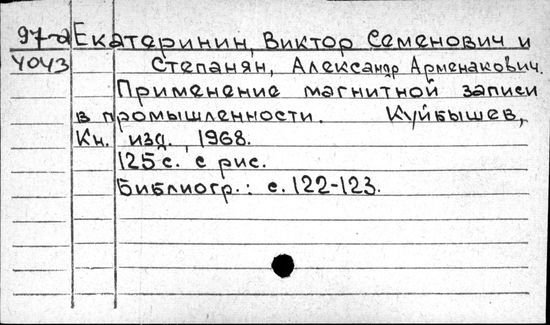 97-2 Екатеринин, Виктор Семенович и
4043 Степанян, Александр Арменакович.
Применение магнитной записи
в промышленности. Куйбышев,
Кн. изд., 1968.
125 с. с рис.
Библиогр.: с. 122-123.